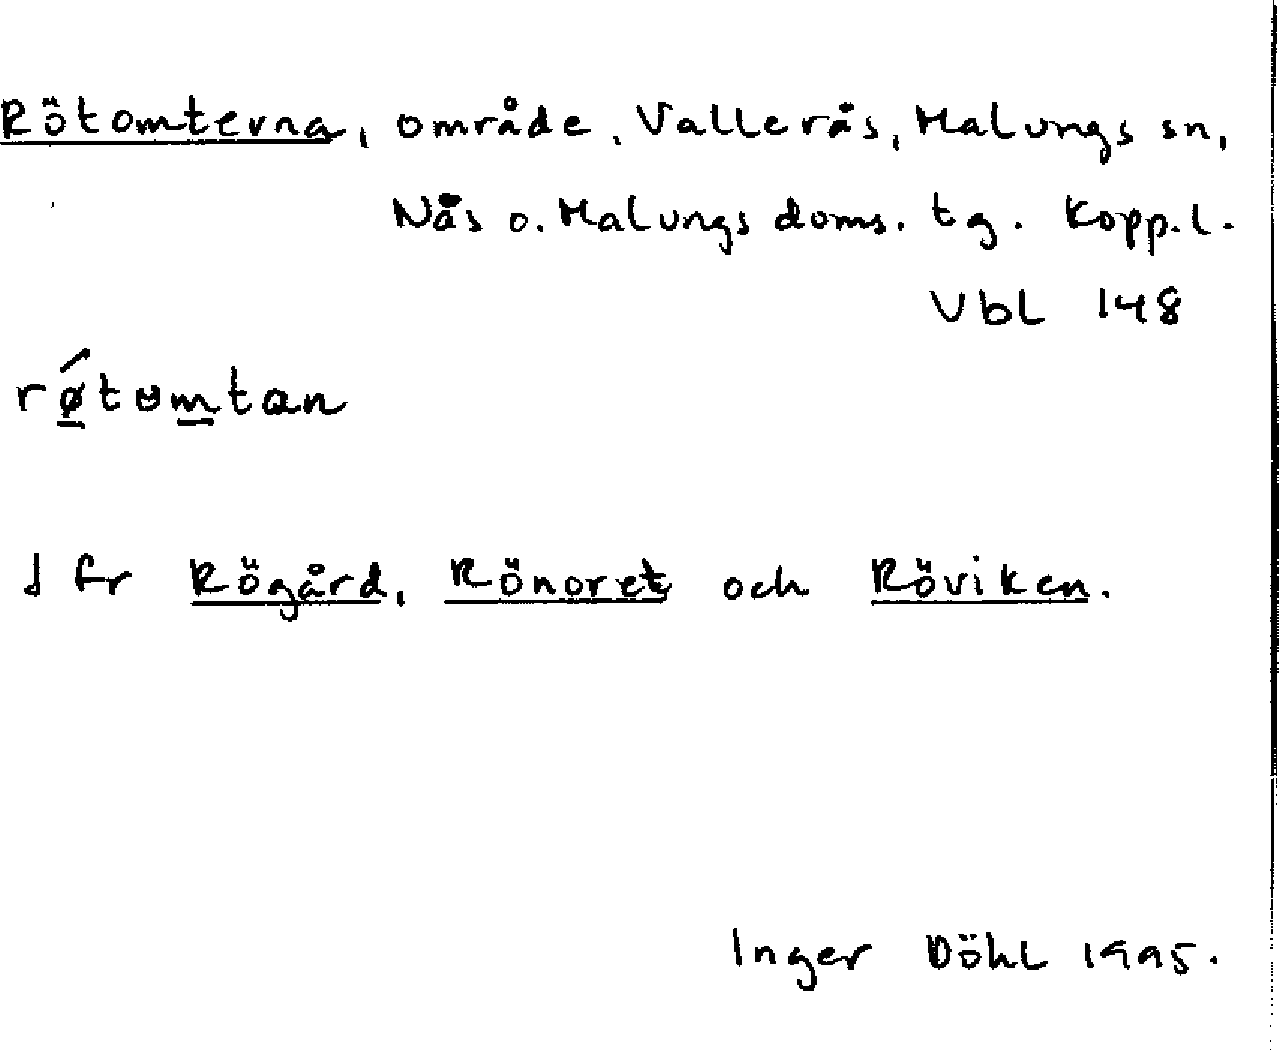 Rötomterna, område, Vallerås, Malungs sn,
Nås o. Malungs doms. tg. Kopp.l.
Vbl 148
rǿtɷmtan
Jfr Rögård, Rönoret och Röviken.
Inger Döhl 1995.